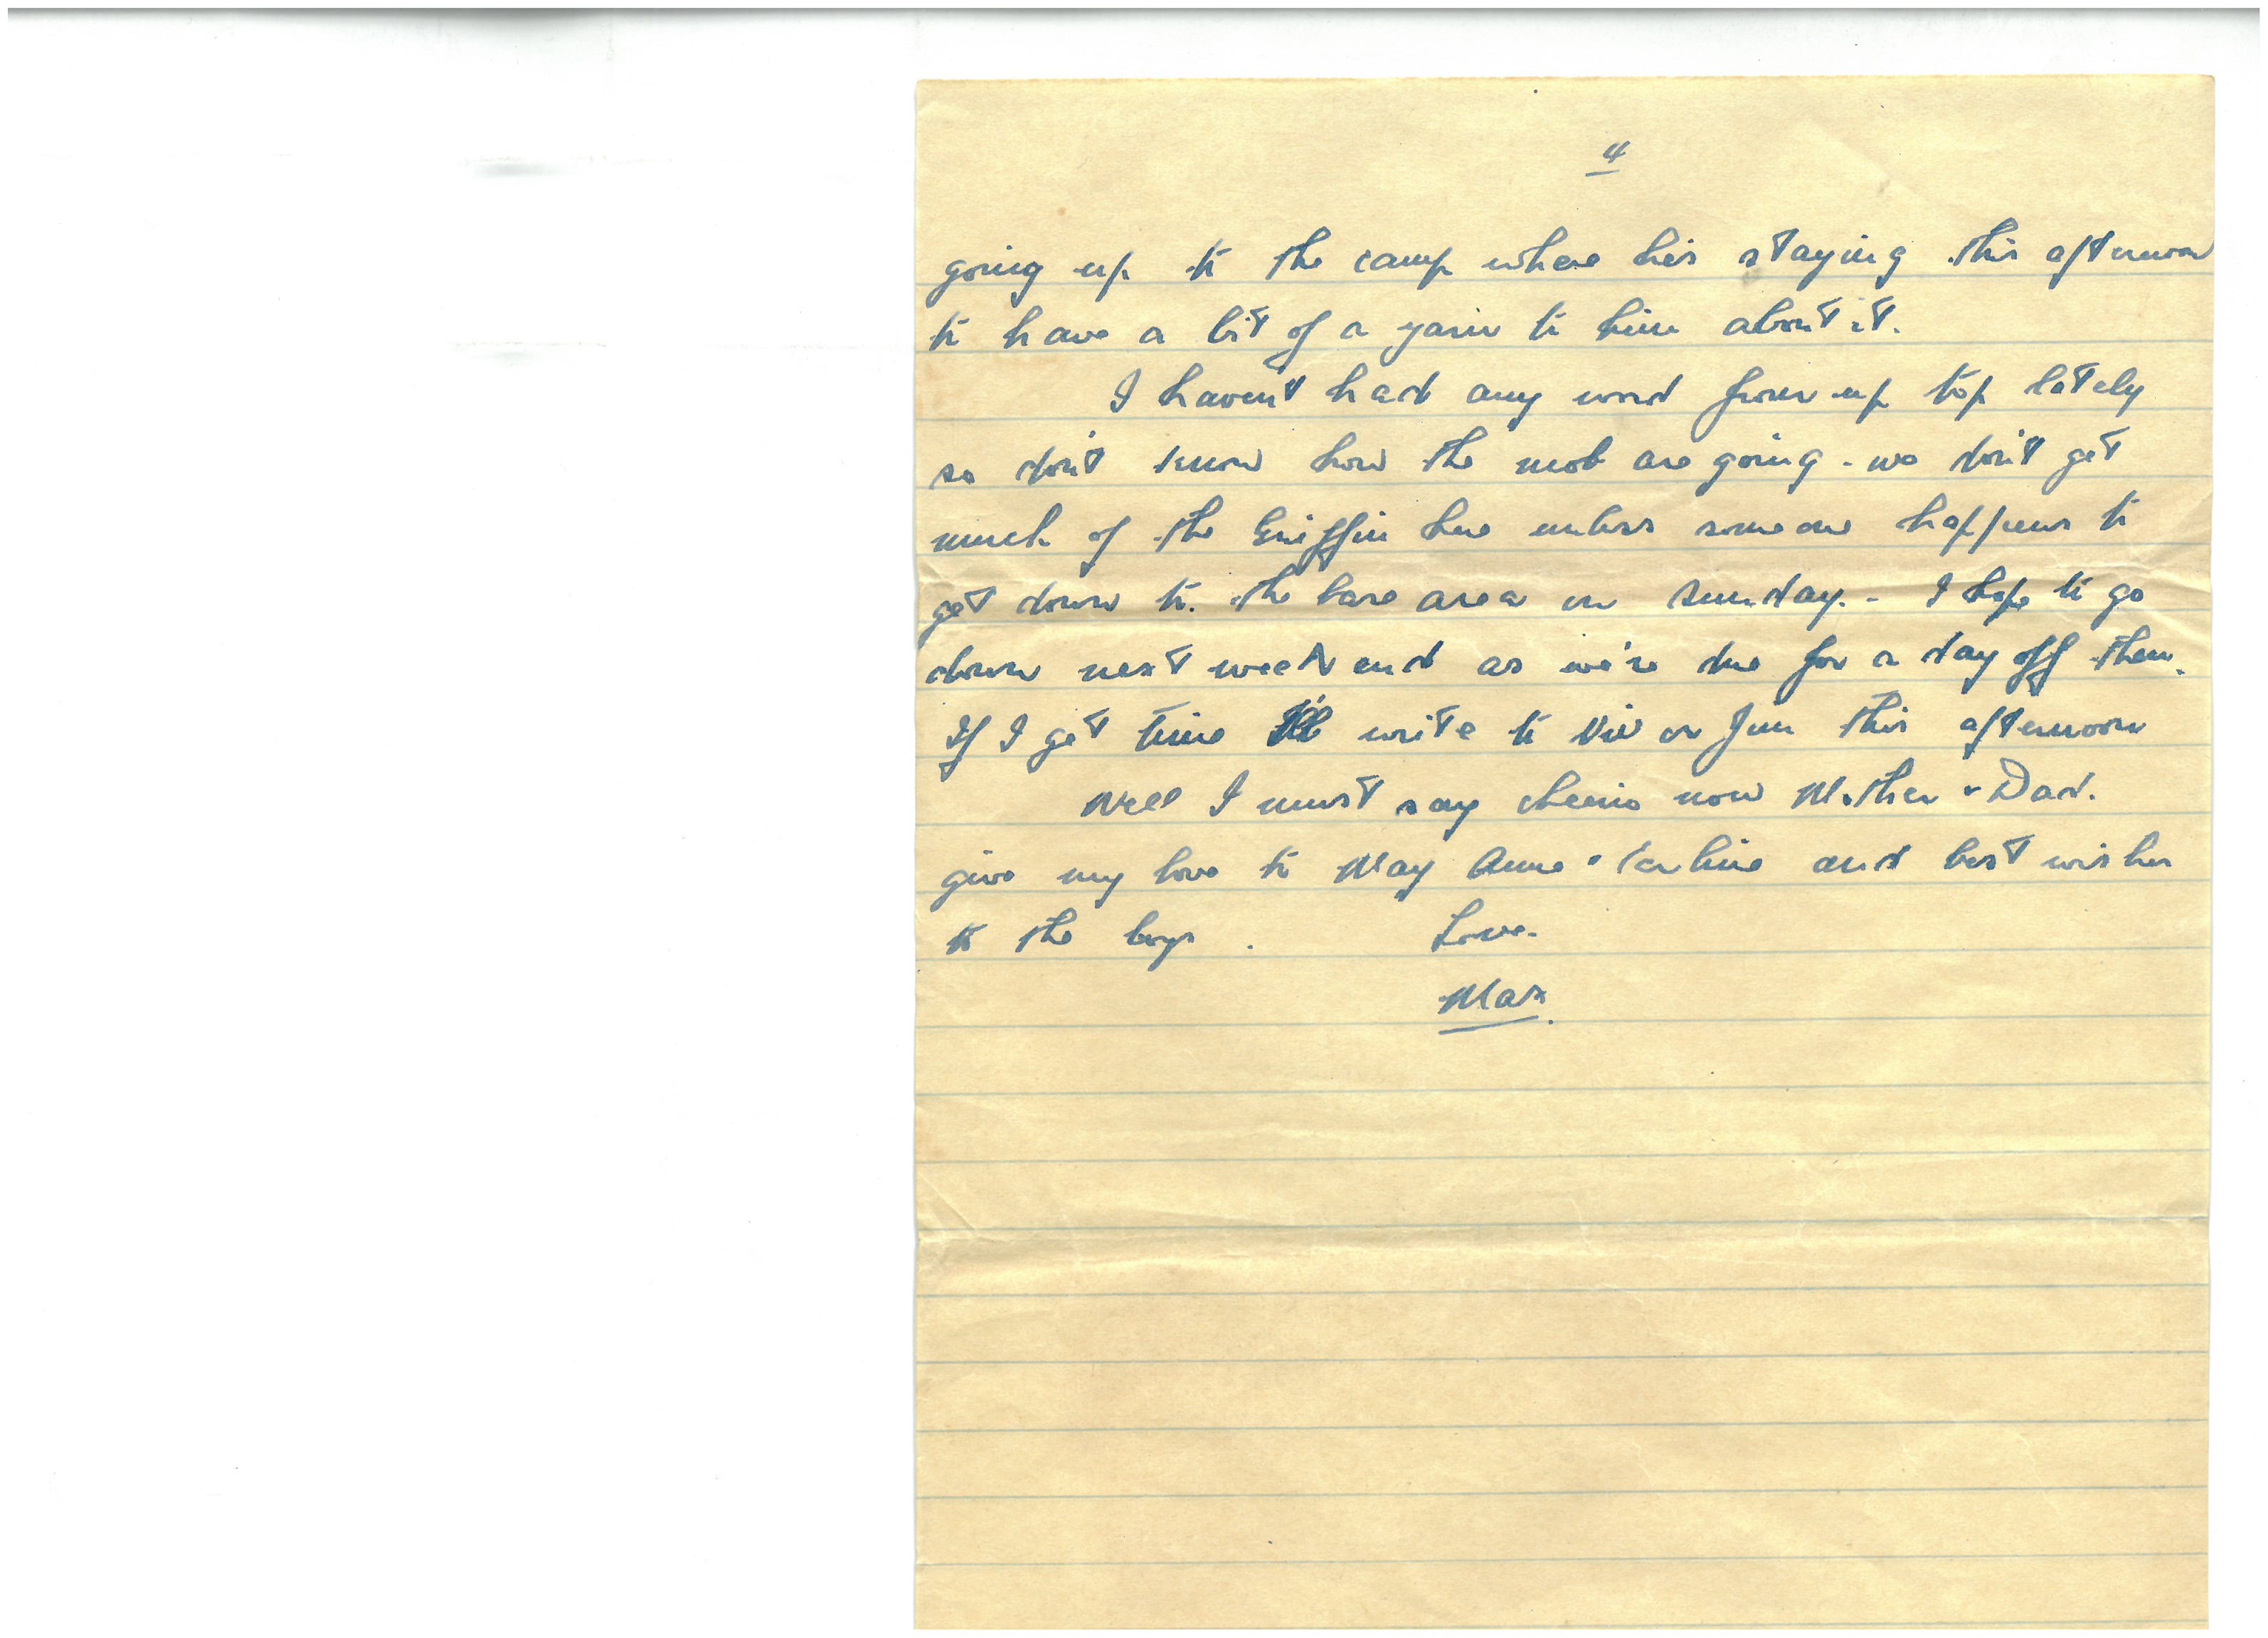 4
going up to the camp where he's staying this afternoon
to have a bit of a yarn to him about it.
I haven't had any word from up top lately
so don't know how the mob are going - we don't get
much of the Griffin here unless someone happens to
get down to the base area on Sunday. - I hope to go
down next week end as we're due for a day off then.
If I get time I'll write to Viv or Jim this afternoon
Well I must say cheerio now Mother & Dad.
give my love to May Anne & and best wishes
to the boys. Love.
Max.